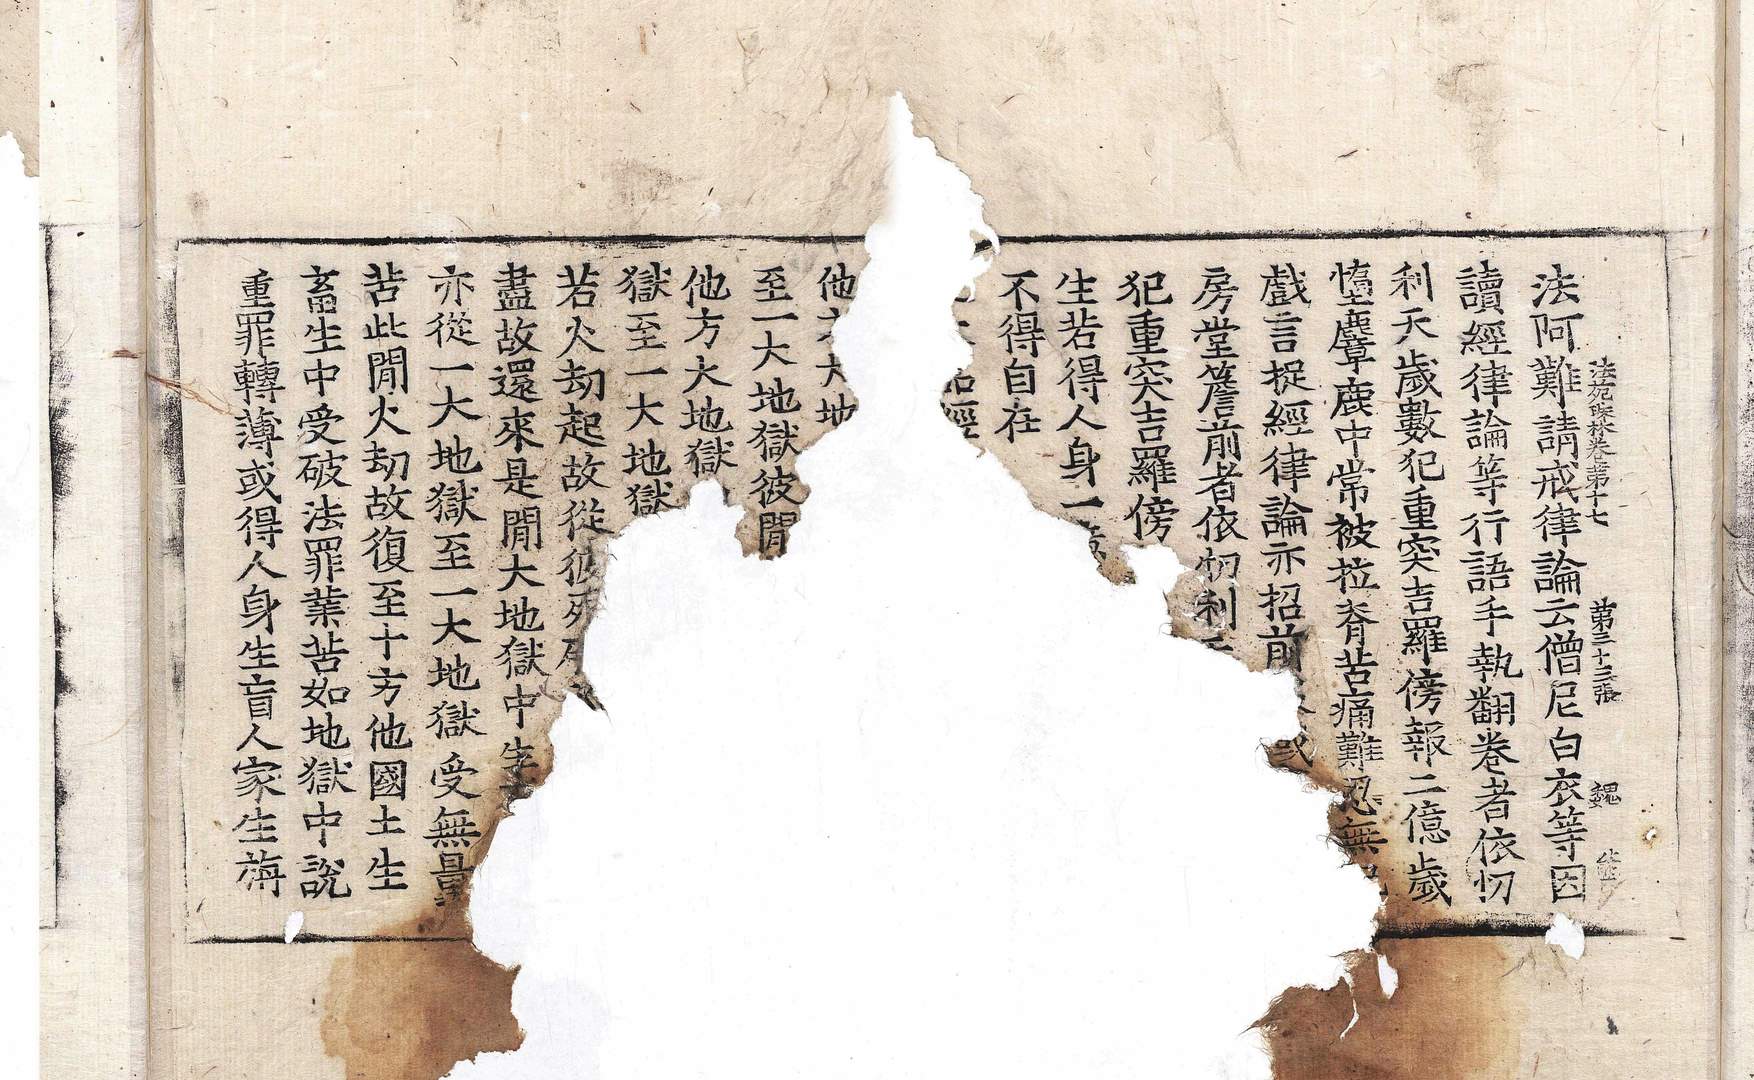 法苑珠林卷第十七 第三十三張 魏
法阿難請戒律論云僧尼白衣等因
讀經律論等行語手執翻卷者依忉
利天歲數犯重突吉羅傍報二億歲
墮麞鹿中常被拉脊苦痛難忍無記
戲言捉經律論亦招前
房堂簷前者依忉利天
犯重突吉羅傍
生若得人身一
不得自在
經
他方大地
至一大地獄彼閒
他方大地獄
獄至一大地獄
若火劫起故從彼死
盡故還來是閒大地獄中生
亦從一大地獄至一大地獄受無量
苦此閒火劫故復至十方他國土生
畜生中受破法罪業苦如地獄中說
重罪轉薄或得人身生盲人家生旃